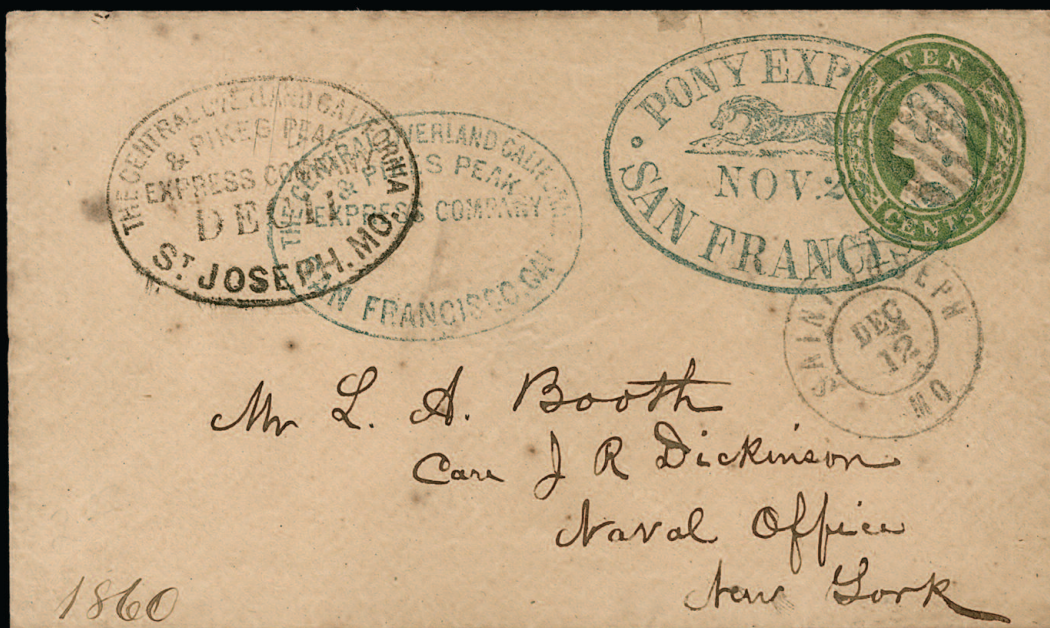 THE CENTRAL OVERLAND CALIFORNIA
& PIKES PEAK
EXPRESS COMPANY
DEC 11
ST JOSEPH. MO.
THE CENTRAL OVERLAND CALIFORNIA
& PIKES PEAK
EXPRESS COMPANY
SAN FRANCISCO. CAL
PONY EXP
NOV. 2
SAN FRANCIS
TEN
CENTS
SAINT JOSEPH
DEC
12
MO
Mr L. A. Booth
Care J R Dickinson
Naval Office
New York
1860